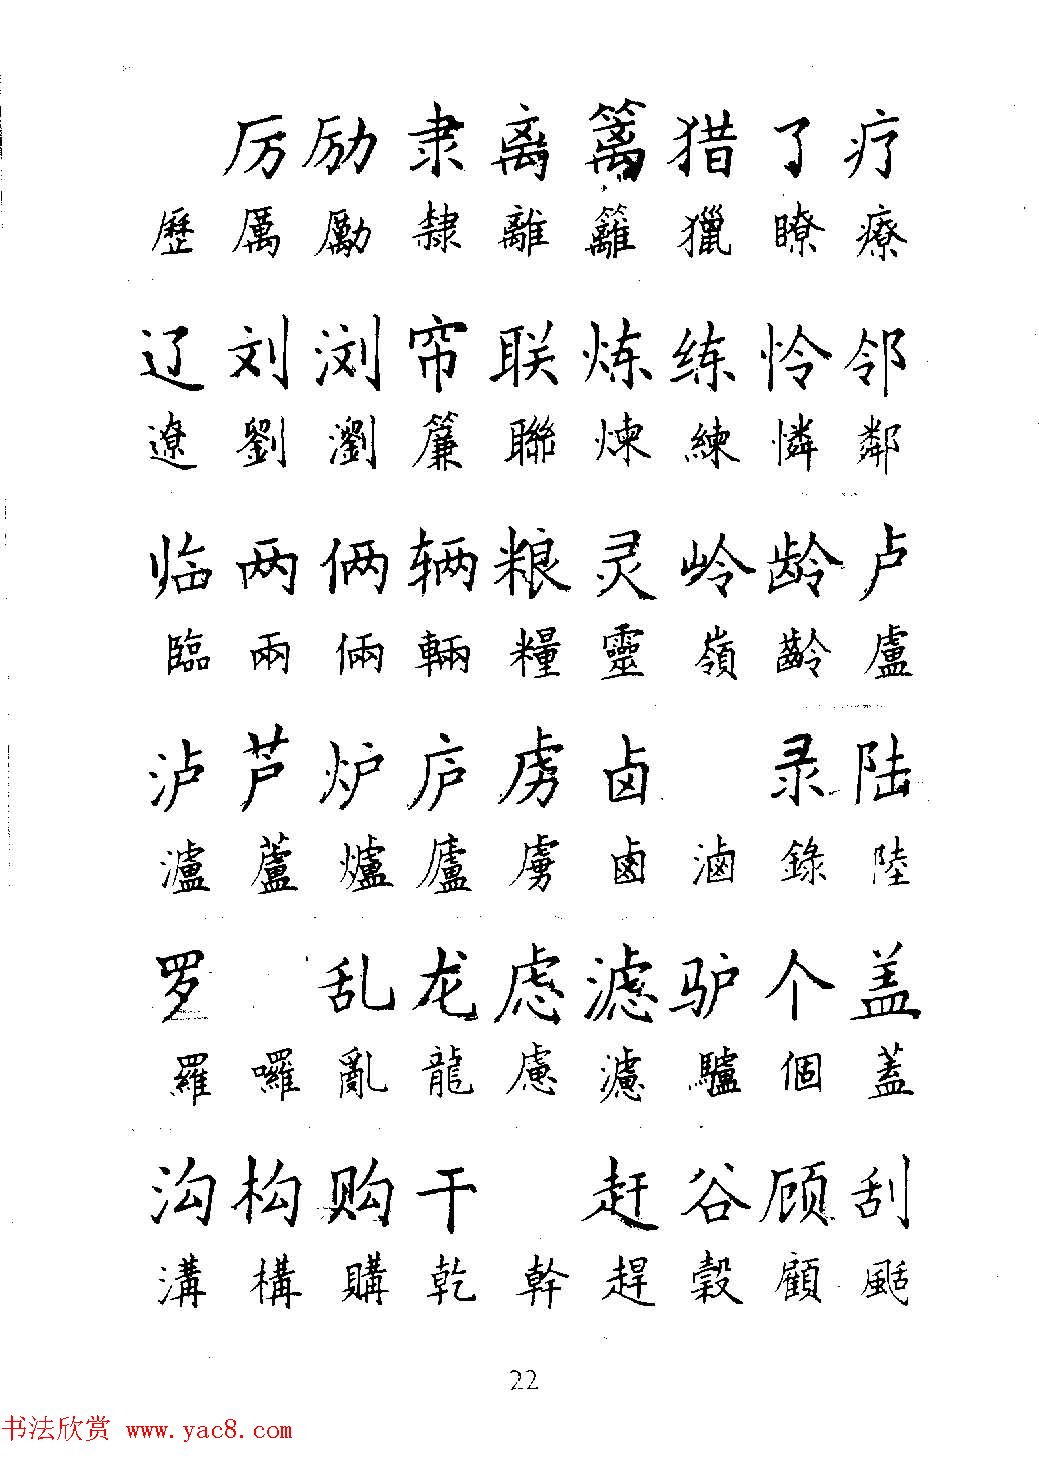 厉励隶离篱猎了疗
歷厲勵隸離籬獵瞭療
辽刘浏帘联炼练怜邻
遼劉瀏簾聯煉練憐鄰
临两俩辆粮灵岭龄卢
臨兩倆輛糧靈嶺齡盧
泸芦炉庐虏卤录陆
瀘蘆爐廬虜鹵滷錄陸
罗乱龙虑滤驴个盖
羅囉亂龍慮濾驢個蓋
沟构购干赶谷顾刮
溝構購乾幹趕穀顧颳
22
书法欣赏 www.yac8.com